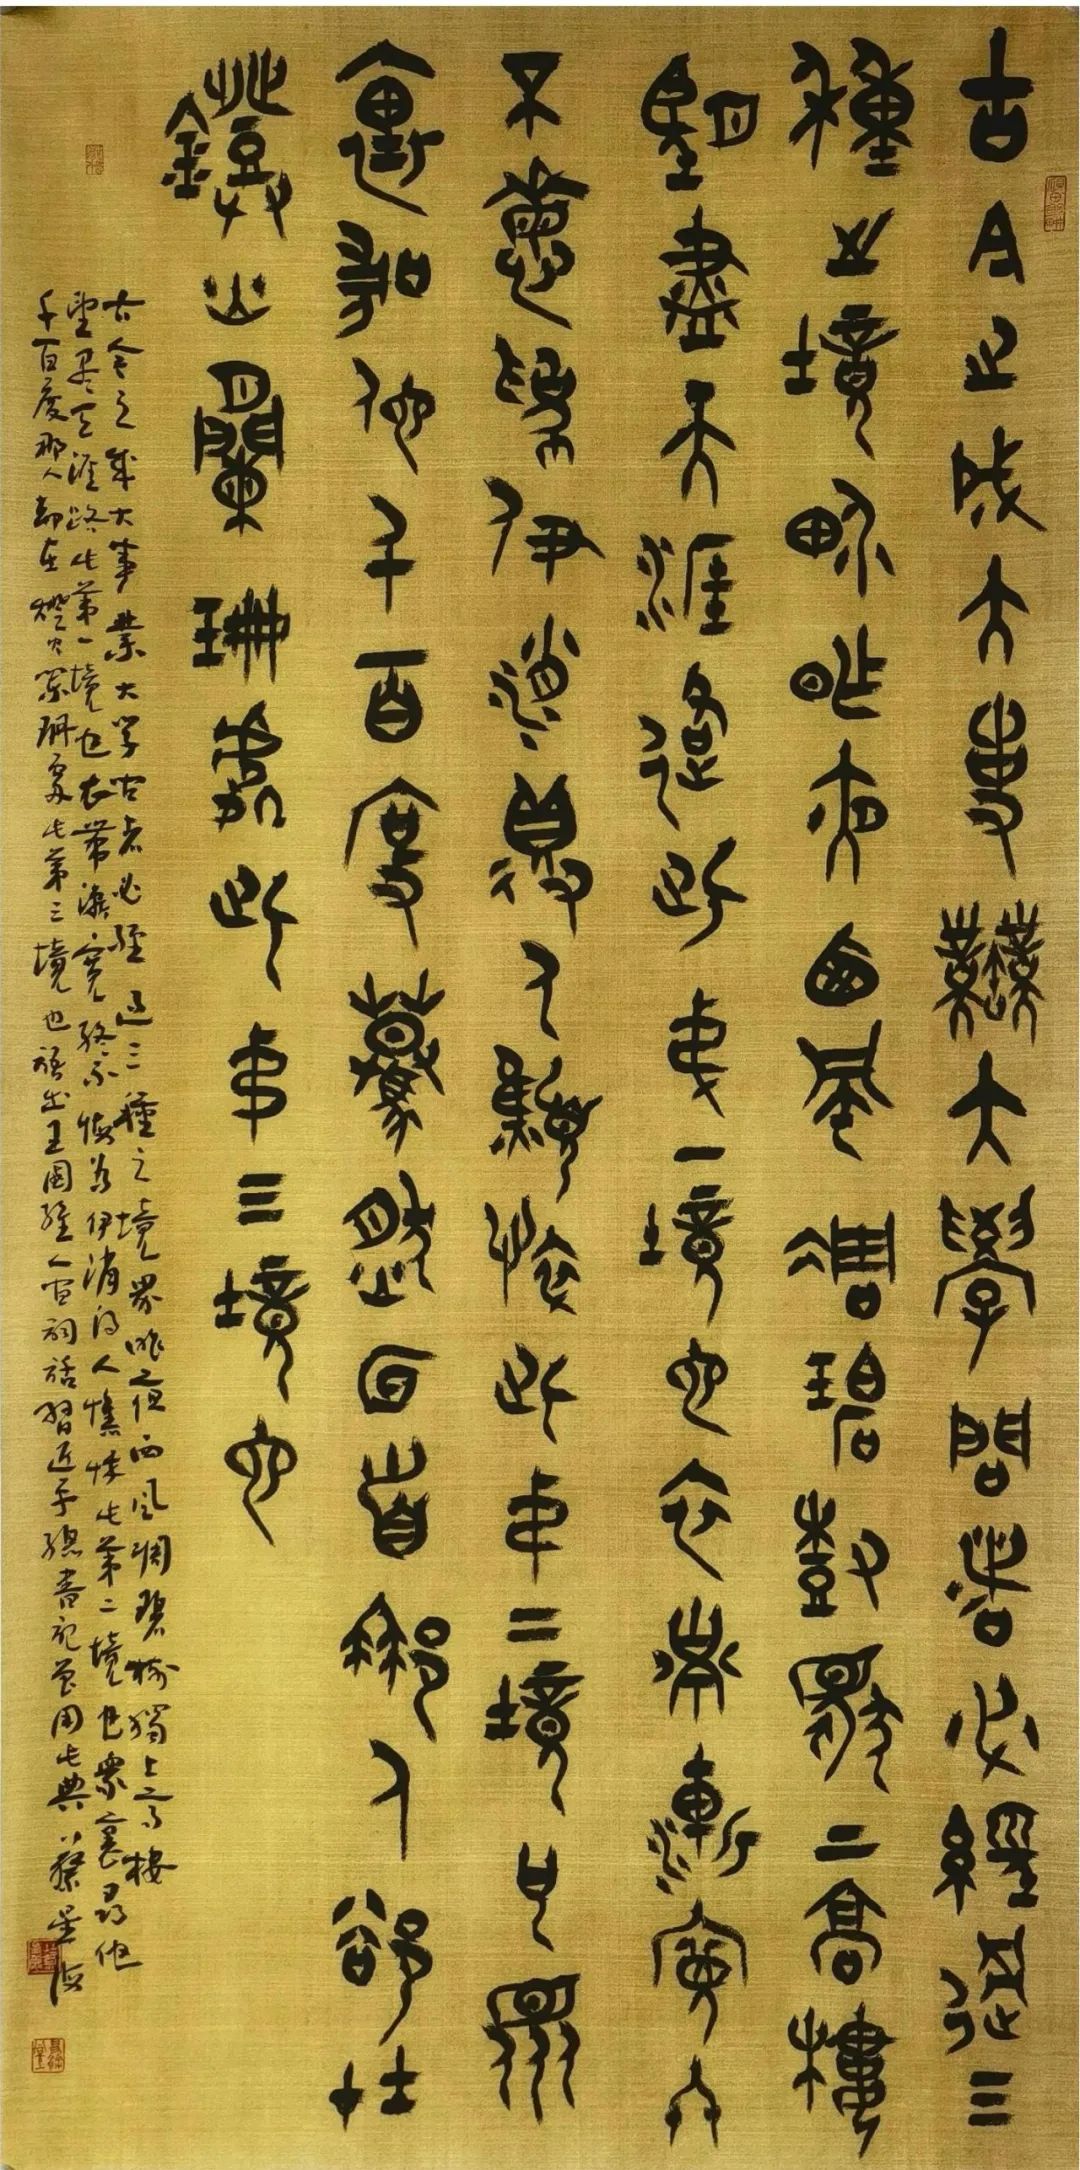 古今之成大事業大學問者必經過三
種之境界昨夜西風凋碧樹獨上高樓
望盡天涯路此第一境也衣帶漸寬終
不悔為伊消得人憔悴此第二境也眾
裏尋他千百度驀然回首那人卻在
燈火闌珊處此第三境也
古今之成大事業大學問者必經過三種之境界昨夜西風凋碧樹獨上高樓
望盡天涯路此第一境也衣帶漸寬終不悔為伊消得人憔悴此第二境也眾裏尋他
千百度那人卻在燈火闌珊處此第三境也語出王國維人間詞話習近平總書記曾用此典蔡